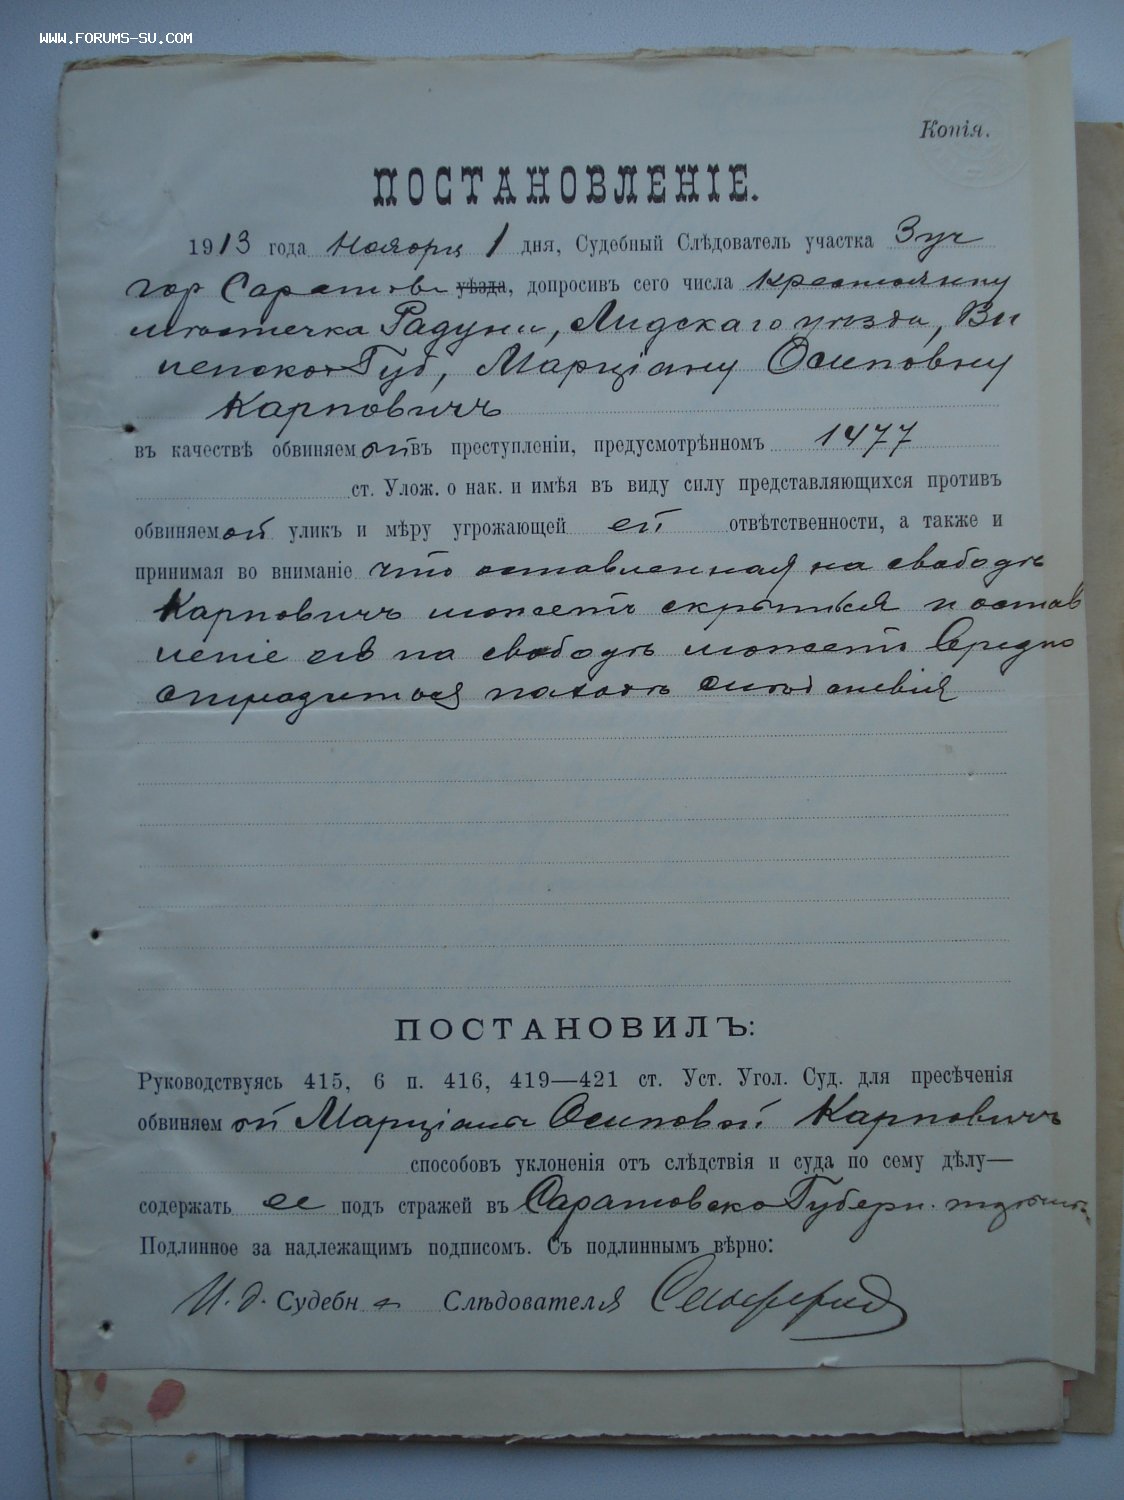 WWW.FORUMS-SU.COM
Копія.
ПОСТАНОВЛЕНІЕ.
1913 года Ноября 1 дня, Судебный Слѣдователь участка 3 уч
гор Саратова уѣзда, допросивъ сего числа крестьянку
мѣстечка Радуни, Лидскаго уѣзда, Ви
ленской Губ, Марціану Осиповну
Карповичъ
въ качествѣ обвиняемой въ преступленіи, предусмотрѣнномъ 1477
ст. Улож. о нак. и имѣя въ виду силу представляющихся противъ
обвиняемой уликъ и мѣру угрожающей ей отвѣтственности, а также и
принимая во вниманіе что оставленная на свободѣ
Карповичъ можетъ скрыться и остав
леніе ея на свободѣ можетъ вредно
отразиться на ходѣ слѣдствія
ПОСТАНОВИЛЪ:
Руководствуясь 415, 6 п. 416, 419—421 ст. Уст. Угол. Суд. для пресѣченія
обвиняемой Марціанѣ Осиповой Карповичъ
способовъ уклоненія отъ слѣдствія и суда по сему дѣлу—
содержать ее подъ стражей въ Саратовской Губерн. тюрьмѣ
Подлинное за надлежащимъ подписомъ. Съ подлиннымъ вѣрно:
И. д. Судебн Слѣдователя